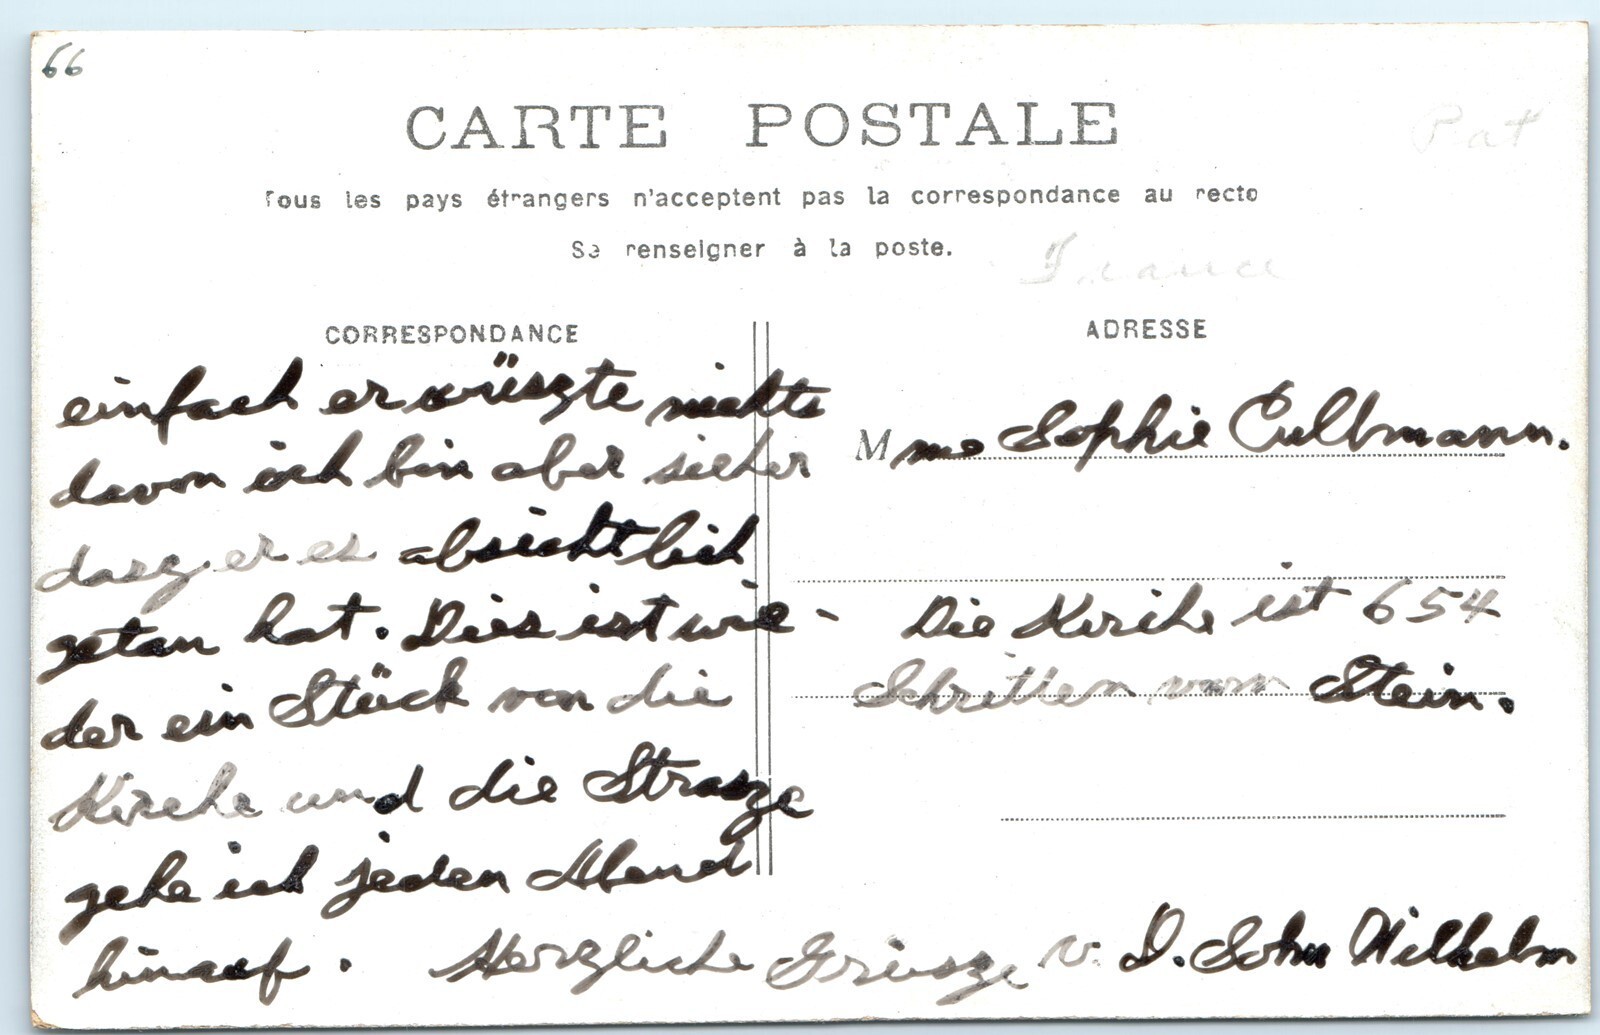 66
CARTE POSTALE
Pat
Tous les pays étrangers n'acceptent pas la correspondance au recto
Se renseigner à la poste.
France
CORRESPONDANCE
einfach er wüszte nichts
davon ich bin aber sicher
dasz er es absichtlich
getan hat. Dies ist wie-
der ein Stück von die
Kirche und die Strasze
gehe ich jeden Abend
hinauf.
ADRESSE
Mme Sophie Cullmann.
Die Kirche ist 654
Schritten vom Stein.
Herzliche Grüsze v. D. Sohn Wilhelm